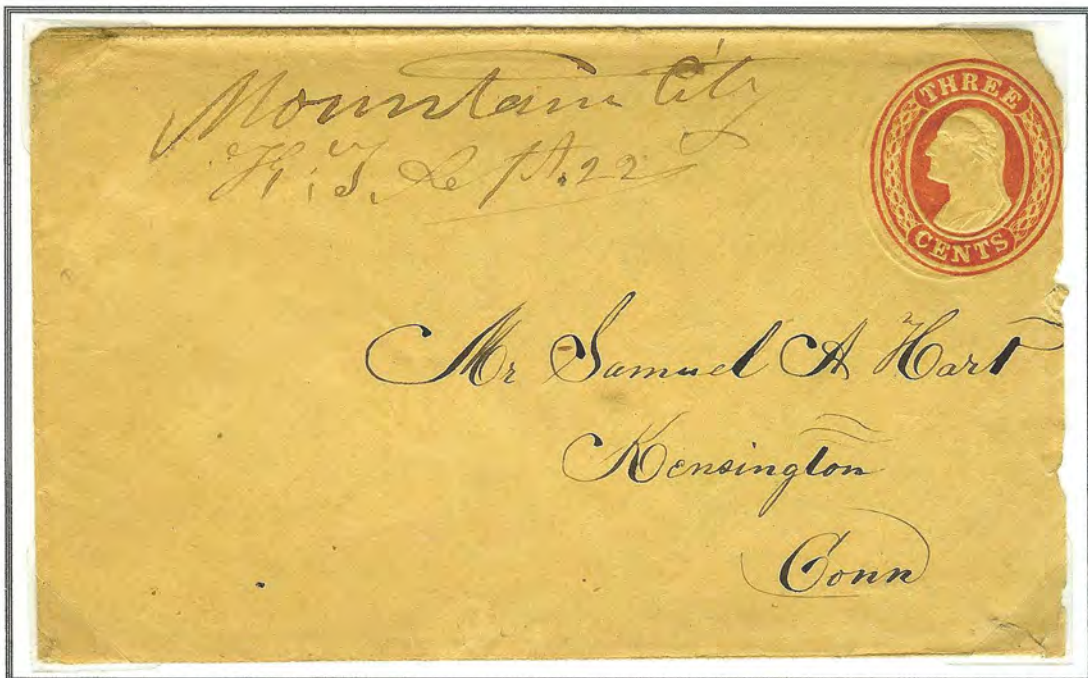 Mountain City
K.T. Sept. 22
THREE
CENTS
Mr Samuel A Hart
Kensington
Conn